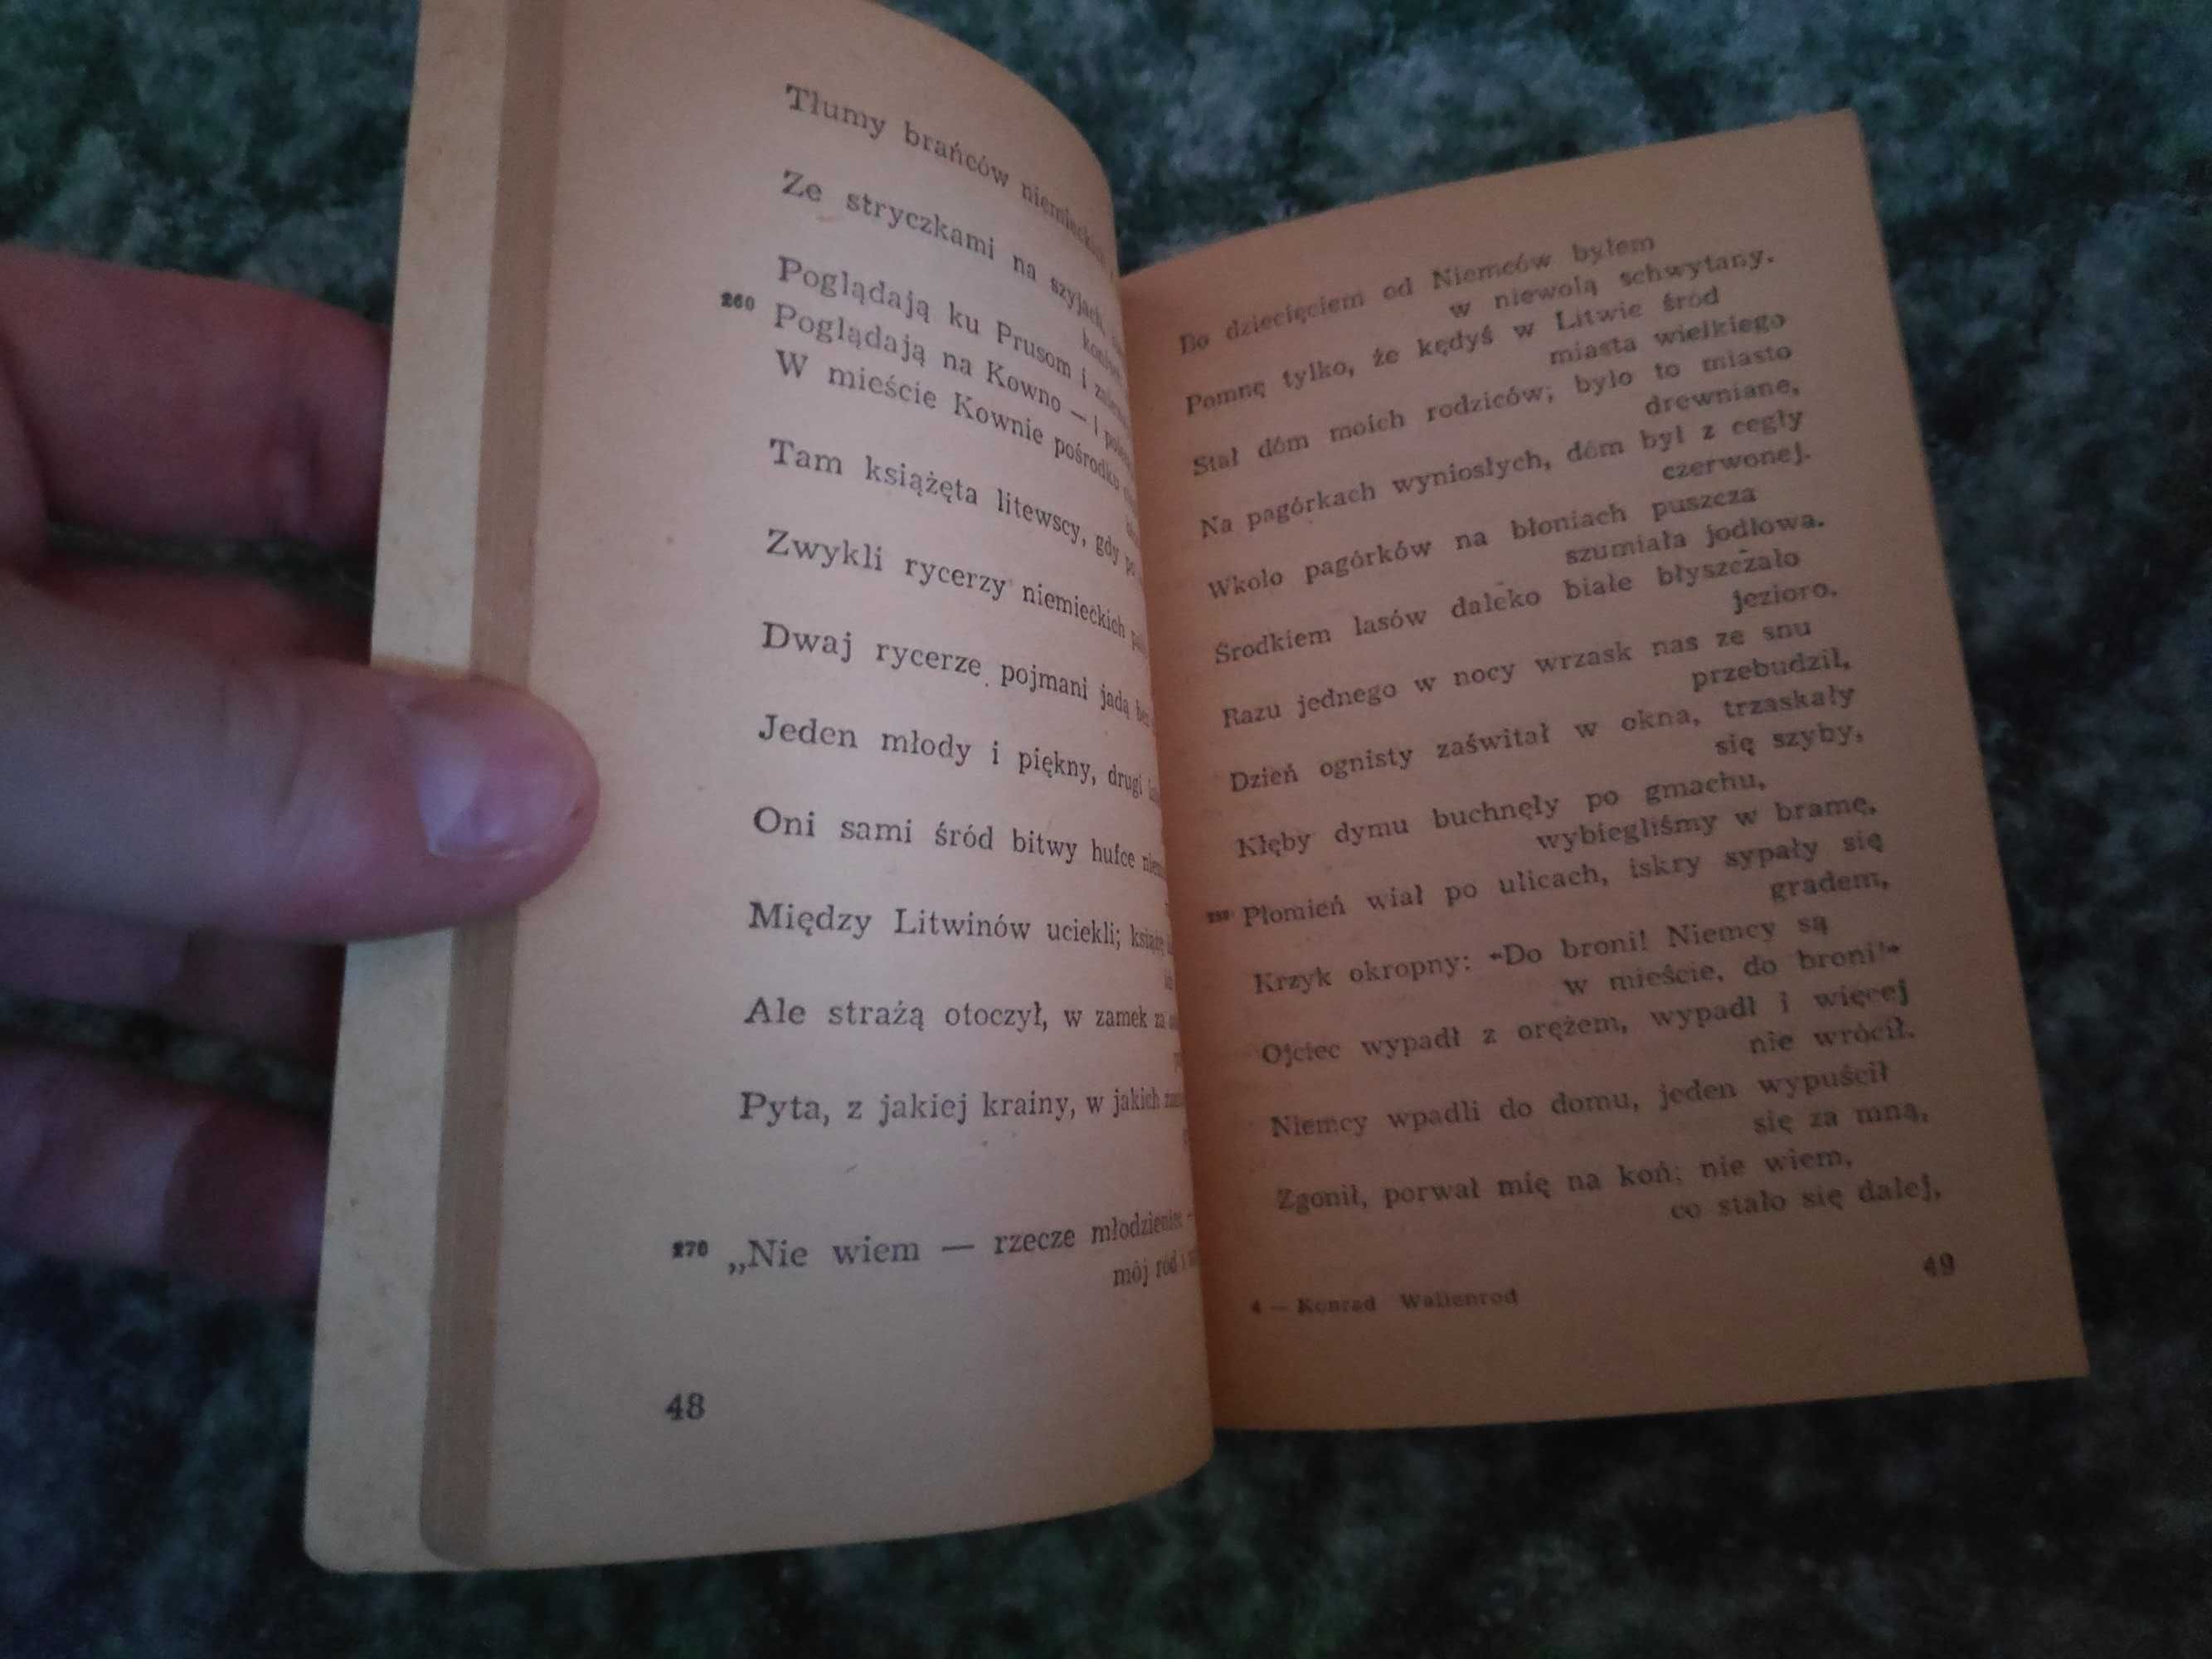 Tłumy brańców niemieckich
Ze stryczkami na szyjach,
Poglądają ku Prusom i
260 Poglądają na Kowno — i
W mieście Kownie pośrodku
Tam książęta litewscy, gdy po
Zwykli rycerzy niemieckich
Dwaj rycerze pojmani jadą bez
Jeden młody i piękny, drugi
Oni sami śród bitwy hufce
Między Litwinów uciekli; książę
Ale strażą otoczył, w zamek za
Pyta, z jakiej krainy, w jakich
270 „Nie wiem — rzecze młodzieniec —
mój ród i
48
Bo dziecięciem od Niemców byłem
w niewolą schwytany.
Pomnę tylko, że kędyś w Litwie śród
miasta wielkiego
Stał dóm moich rodziców; było to miasto
drewniane,
Na pagórkach wyniosłych, dóm był z cegły
czerwonej.
Wkoło pagórków na błoniach puszcza
szumiała jodłowa.
Środkiem lasów daleko białe błyszczało
jezioro.
Razu jednego w nocy wrzask nas ze snu
przebudził,
Dzień ognisty zaświtał w okna, trzaskały
się szyby,
Kłęby dymu buchnęły po gmachu,
wybiegliśmy w bramę,
Płomień wiał po ulicach, iskry sypały się
gradem,
Krzyk okropny: «Do broni! Niemcy są
w mieście, do broni!»
Ojciec wypadł z orężem, wypadł i więcej
nie wrócił.
Niemcy wpadli do domu, jeden wypuścił
się za mną,
Zgonił, porwał mię na koń; nie wiem,
co stało się dalej,
4 — Konrad Wallenrod
49